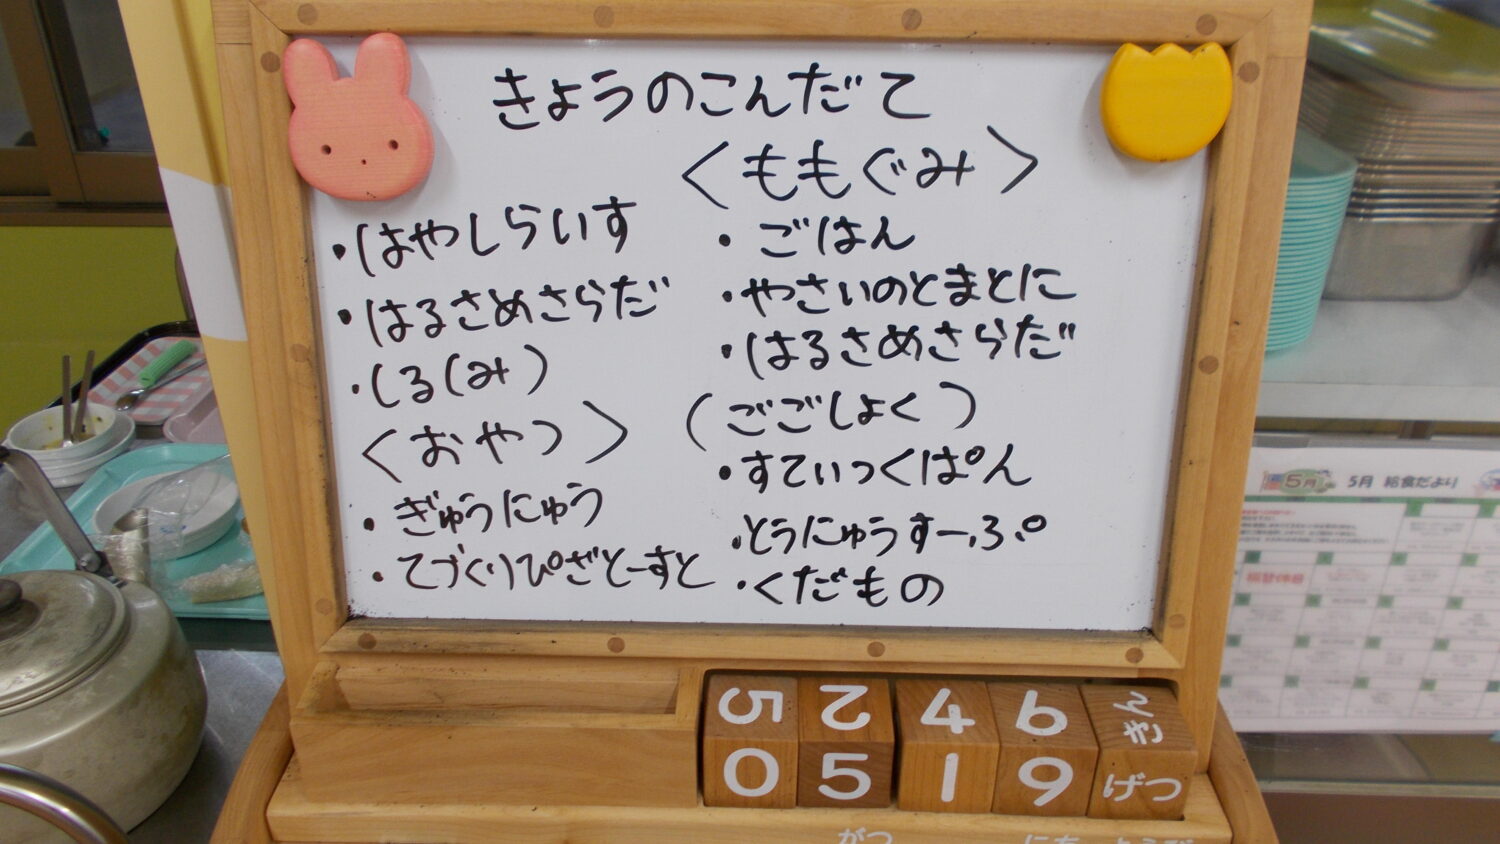 きょうのこんだて
・はやしらいす
・はるさめさらだ
・しる(み)
<おやつ>
・ぎゅうにゅう
・てづくりぴざとーすと
<ももぐみ>
・ごはん
・やさいのとまとに
・はるさめさらだ
(ごごしょく)
・すてぃっくぱん
・とうにゅうすーぷ
・くだもの
5 2 4 6 きん
0 5 1 9 げつ
がつ にち ようび
5月 5月 給食だより